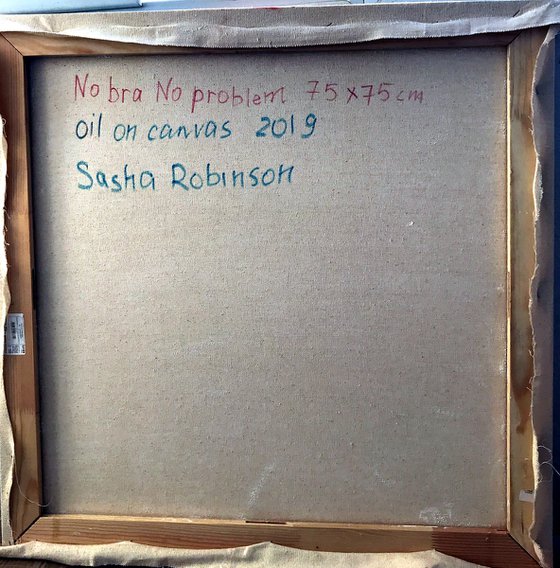 No bra No problem 75x75cm
oil on canvas 2019
Sasha Robinson